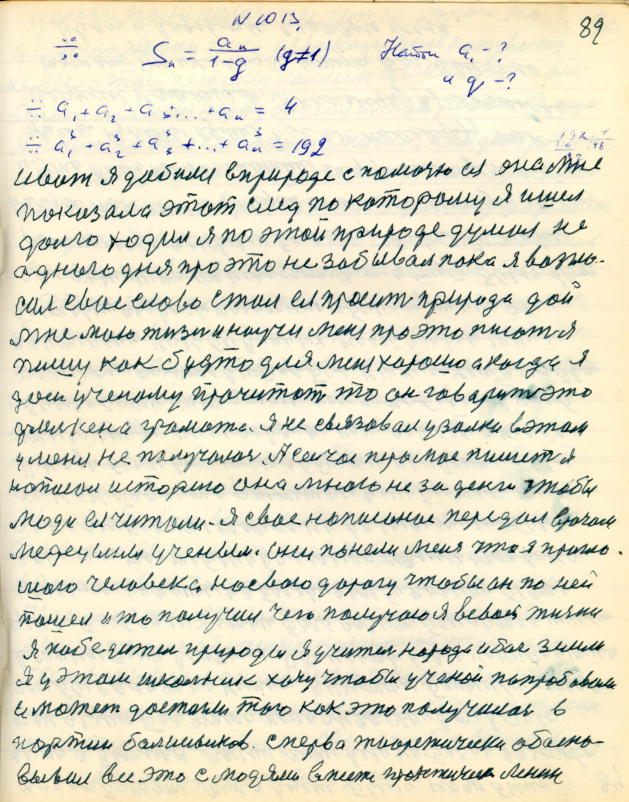 N 1013.
89
∺ Sₙ = aₙ / 1-q (q≠1) Найти a₁-?
и q-?
∺ a₁+a₂+a₃+...+aₙ = 4
∺ a₁³+a₂³+a₃³+...+aₙ³ = 192
и вот я добился в природе с помочью ея она мне
показала этот след по которому я шел
долго ходил я по этой природе думал не
одного дня про это не забывал пока я
свое слово стал ея просит природа дой
мне мою жизн и научи меня про это писат я
пишу как будто для меня хорошо а когда я
дом ученому прочитат то он говарит это
грамота. Я не связовал узалки в этом
у меня не получолос. А сейчас перо мое пишет я
написал историю она много не за денги чтобы
люди ея читали. Я свое написоное передал врачам
ученым. они поняли меня что я
человека, на свою дорогу чтобы он по ней
пошел и то получил чего получаю я в своей жизни
Я победител природы я учител народа и бог земли
Я у этом школник хочу чтобы ученой попробовали
и может достали того как это получилос в
портии балшивиков. сперва тиоретически обасно-
вывал все это с людями вместе практически Ленин